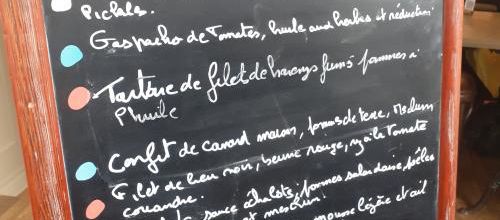 Pickles.
Gaspacho de Tomates, huile aux herbes et réduction
Tartare de filet de harengs fumés pommes à
l'huile
Confit de canard maison, pommes de terre,
Filet de lieu noir, beurre rouge, Tomate
coriandre.
sauce échalote, pommes salardaise, poêles
et mesclun